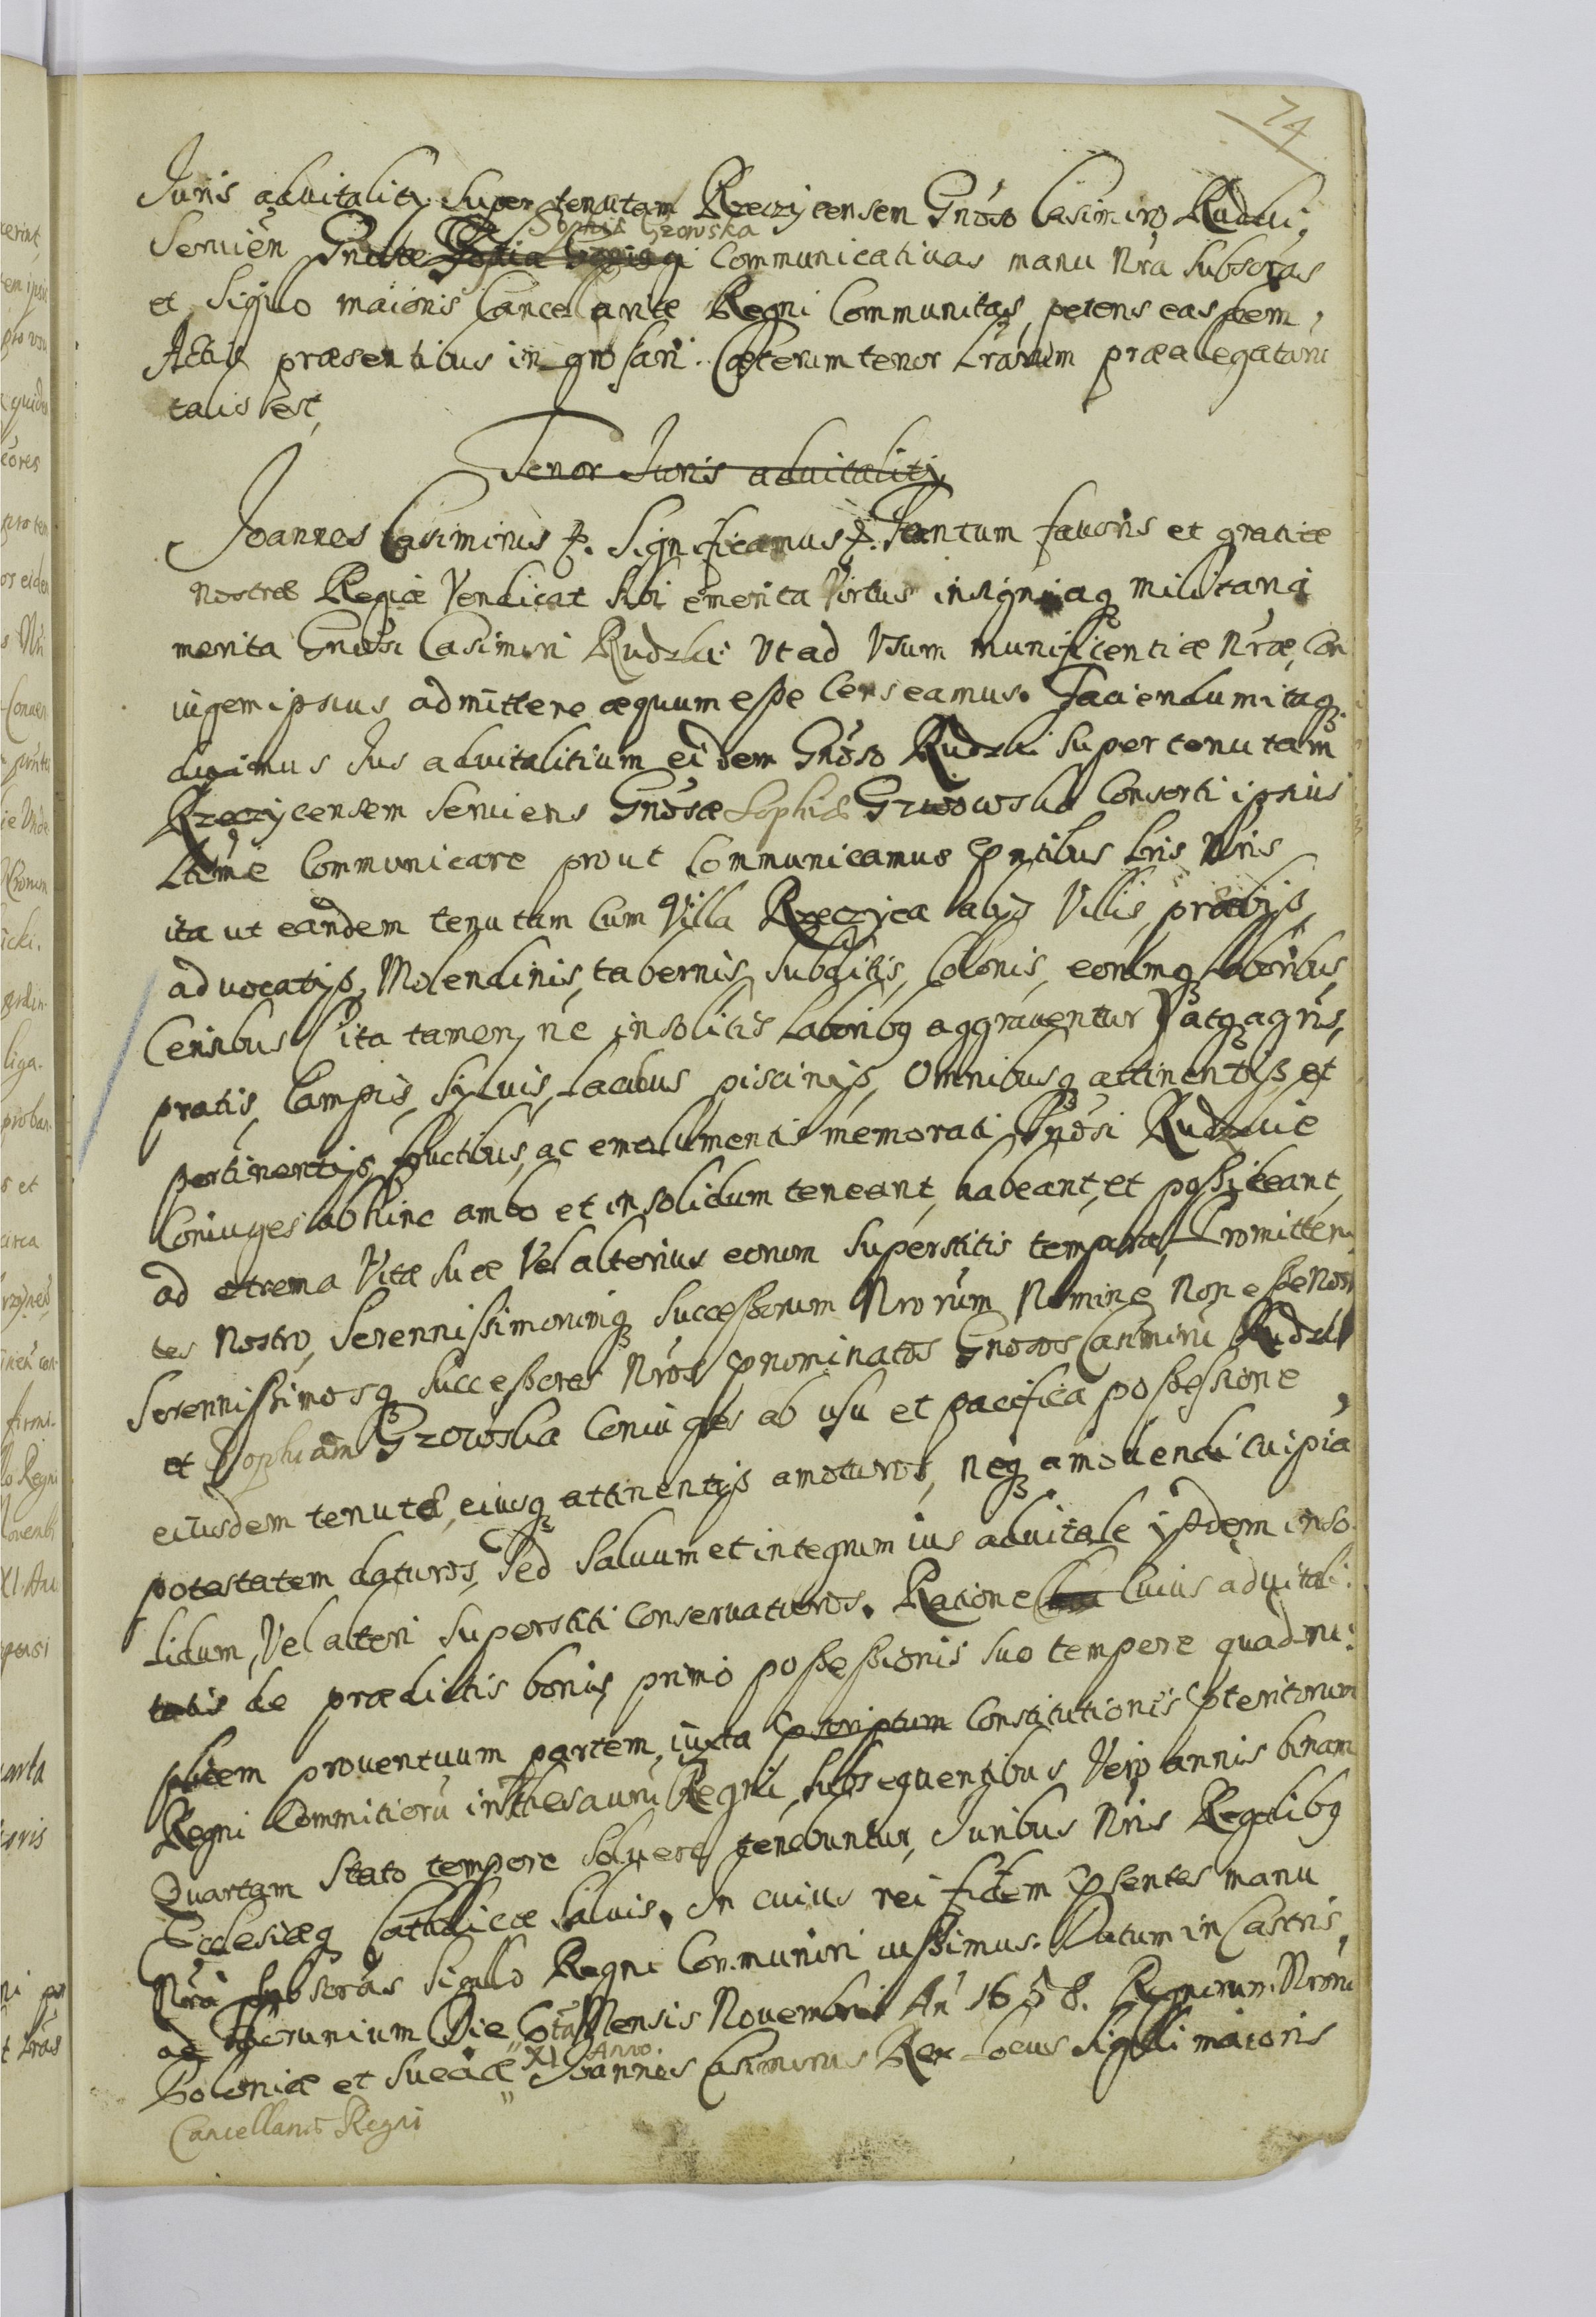 74
Juris advitalitij super tenutam Rzeczycensem Gnoso Casimiro Rudzki
Sophiæ Gzowska
Servien Gnosæ Communicativas manu Nra Subscras
et Sigillo maioris Cancellariæ Regni Communitas, petens eas dem
Actis præsentibus in grosari. Cæterum tenor Lrarum præallegatarum
talis est,
Tenor Juris advitalitij
Joannes Casimirus &. Significamus &. Tantum favoris et gratiæ
nostræ Regiæ Vendicat sibi emerita Virtus insigniaq militaria
merita Gnosi Casimiri Rudzki Ut ad Usum munificentiæ Nræ, Con
iugem ipsius admittere æquum esse Censeamus. Faciendum itaq
duximus Jus advitalitium eidem Gnoso Rudzki super tenutam
Rzeczycensem Serviens Gnosæ Sophiæ Gzowowska Consorti ipsius
Ltime Communicare prout Communicamus pntibus Lris Nris
ita ut eandem tenutam Cum Villa Rzeczyca alijs Villis, prædijs,
advocatijs, Molendinis, tabernis, subditis, Colonis, eorumq laboribus,
Censibus (ita tamen, ne insolitis laboribq aggraventur) atq agris,
pratis, Campis, Sylvis, lacubus piscinijs, Omnibusq attinentijs et
pertinentijs, fructibus, ac emolumentis memorati Gnosi Rudzkie
Coniuges abhinc ambo et in solidum teneant, habeant, et possideant,
ad etrema Vitæ suæ Vel alterius eorum Superstitis tempora, Promitten
tes Nostro, Serennissimorumq Successorum Nrorum Nomine Non esse Nos
Serennissimosq Successores Nros pnominatos Gnosos Casimirum Rudzki
et Sophiam Gzowska Coniuges ab usu et pacifica possessione
eiusdem tenutæ, eiusq attinentijs amoturos, neq amovendi cuipiã
potestatem daturos, Sed Salvum et integrum ius advitale ijsdem in so
lidum, Vel alteri Superstiti Conservaturos. Ratione Cuius advitali
tatis de prædictis bonis, primo possessionis suo tempere quadru:
plicem proventuum partem, iuxta pscriptum Constitutionis pteritorum
Regni Commitiorũ in Thesaurũ Regni, Subsequentibus Vero annis binam
Quartam Stato tempore Solvere tenebuntur, Juribus Nris Regalibq
Ecclesiæq Catholicæ Salvis. In cuius rei fidem psentes manu
Nra Subscras Sigillo Regni Communiri iussimus. Datum in Castris
ad Thorunium Die 6ta Mensis Novembris Añ 1658. Regnorum Nrorũ
XI Anno.
Poloniæ et Sueciæ Joannes Casimirus Rex Locus Sigilli maioris
Cancellariæ Regni